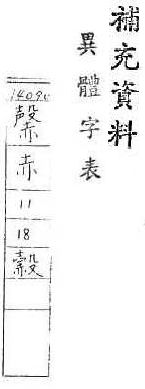 補充資料
異體字表
14090
赤
11
18